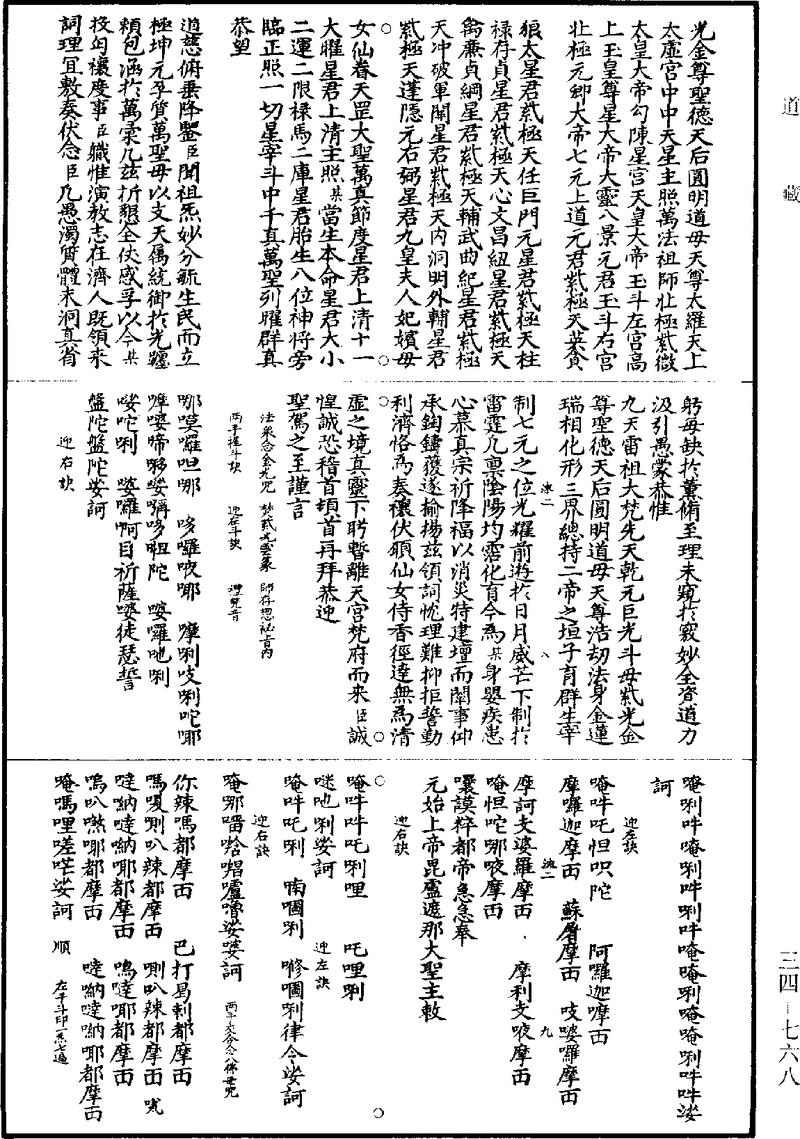 道藏
光金尊聖德天后圓明道母天尊太羅天上
太虛宮中中天星主照萬法祖師北極紫微
太皇大帝勾陳星宮天皇大帝玉斗左宮高
上玉皇尊星大帝大靈八景元君玉斗右宮
北極元卿大帝七元上道元君紫極天英貪
狼太星君紫極天任巨門元星君紫極天柱
祿存貞星君紫極天心文昌紐星君紫極天
禽廉貞綱星君紫極天輔武曲紀星君紫極
天冲破軍關星君紫極天內洞明外輔星君
紫極天蓬隱元右弼星君九皇夫人妃嬪母
女仙眷天罡大聖萬真節度星君上清十一
大曜星君上清主照某當生本命星君大小
二運二限祿馬二庫星君胎生八位神將旁
臨正照一切星宰斗中千真萬聖列曜群真
恭望
道慈俯垂降鑒臣聞祖炁妙分毓生民而立
極坤元孚質萬聖母以支天統御於光躔
賴包涵於萬彙凡茲祈懇全仗感孚以今某
投匄禳度事臣職惟演教志在濟人既領來
詞理宜敷奏伏念臣凡愚濁質體未洞真省
躬每缺於薰脩至理未窺於竅妙全資道力
汲引愚蒙恭惟
九天雷祖大梵先天乾元巨光斗母紫光金
尊聖德天后圓明道母天尊浩劫法身金蓮
瑞相化形三界總持二帝之垣子育群生宰
制七元之位光耀前遊於日月威芒下制於
雷霆凡禀陰陽均霑化育今為某身嬰疾患
心慕真宗祈降福以消災特建壇而闡事仰
承鈞鑄獲遂揄揚茲領詞忱理難抑拒誓勤
利濟恪為奏禳伏願仙女侍香徑達無為清
虛之境真靈下聘暫離天宮梵府而來臣誠
惶誠恐稽首頓首再拜恭迎
聖駕之至謹言
法眾念金光咒 焚貳光靈篆 師存想祕旨內
兩手握斗訣 迎左斗訣
哪莫囉呾哪 哆囉夜哪 摩唎吱唎咜哪
嚩嚩啼哆娑嚩哆吒陀 婆囉吔唎
唦陀唎 婆囉啊目祈薩嚩徒瑟誓
盤陀盤陀娑訶
迎右訣
唵唎吽唵唎吽唎吽唵唵唎唵唵唎吽吽娑
訶
迎左訣
唵吽吒怛呮陀 阿囉迦摩靣
摩囉迦摩靣 蘇屠摩靣 吱嚩囉摩靣
摩訶支婆羅摩靣 摩利支唳摩靣
唵怛陀哪唳摩靣
囔謨粹都帝急急奉
元始上帝毘盧遮那大聖主敕
迎右訣
唵吽吽吒唎哩 吒哩唎
唴吔唎娑訶 迎左訣
唵吽吒唎 喃啯唎 啯唎律令娑訶
迎右訣
唵哪囉嚕娑嚩訶
你辣嗎都摩靣 巴打曷剌都摩靣
嗎嗄唎叭辣都摩靣 唎叭辣都摩靣
噠吶噠吶耶都摩靣 嗚噠耶都摩靣
嗚叭嘿耶都摩靣 噠吶噠吶耶都摩靣
唵嗎哩嗟茫娑訶 順 左手斗印一炁七遍
三四—七六八